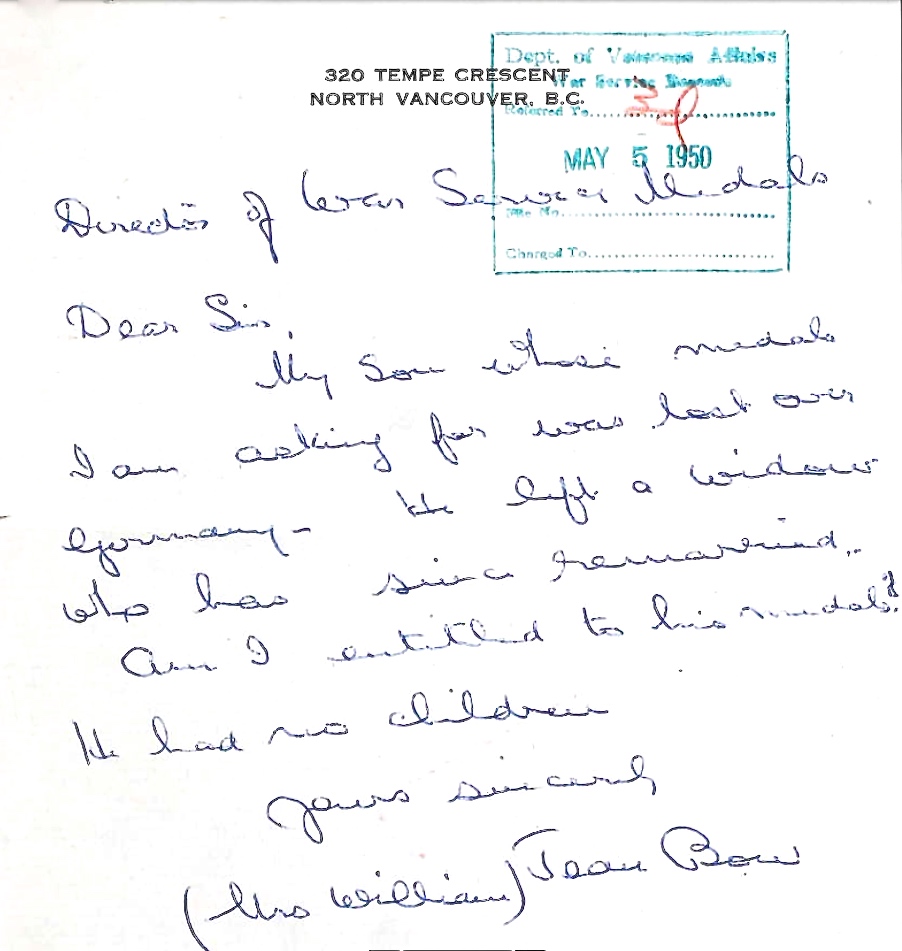 320 TEMPE CRESCENT
NORTH VANCOUVER, B.C.
Dept. of Veterans Affairs
War Service Records
Referred To
MAY 5 1950
File No.
Charged To
Director of War Service Medals
Dear Sir,
My son whose medals
I am asking for was lost over
Germany - He left a widow
who has since remarried.
Am I entitled to his medals?
He had no children
Yours sincerely
(Mrs William) Jean Bow